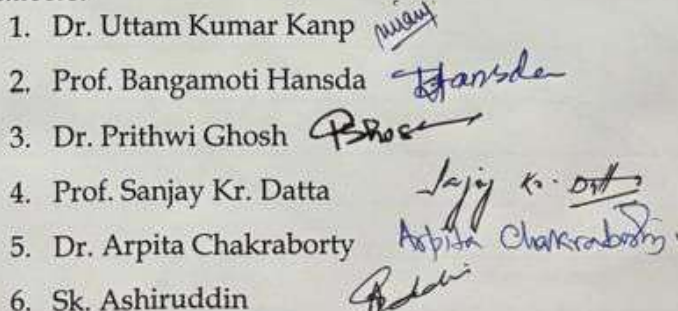 1. Dr. Uttam Kumar Kanp
2. Prof. Bangamoti Hansda Hansda
3. Dr. Prithwi Ghosh Ghosh
4. Prof. Sanjay Kr. Datta Sanjay Kr. Datta
5. Dr. Arpita Chakraborty Arpita Chakraborty
6. Sk. Ashiruddin